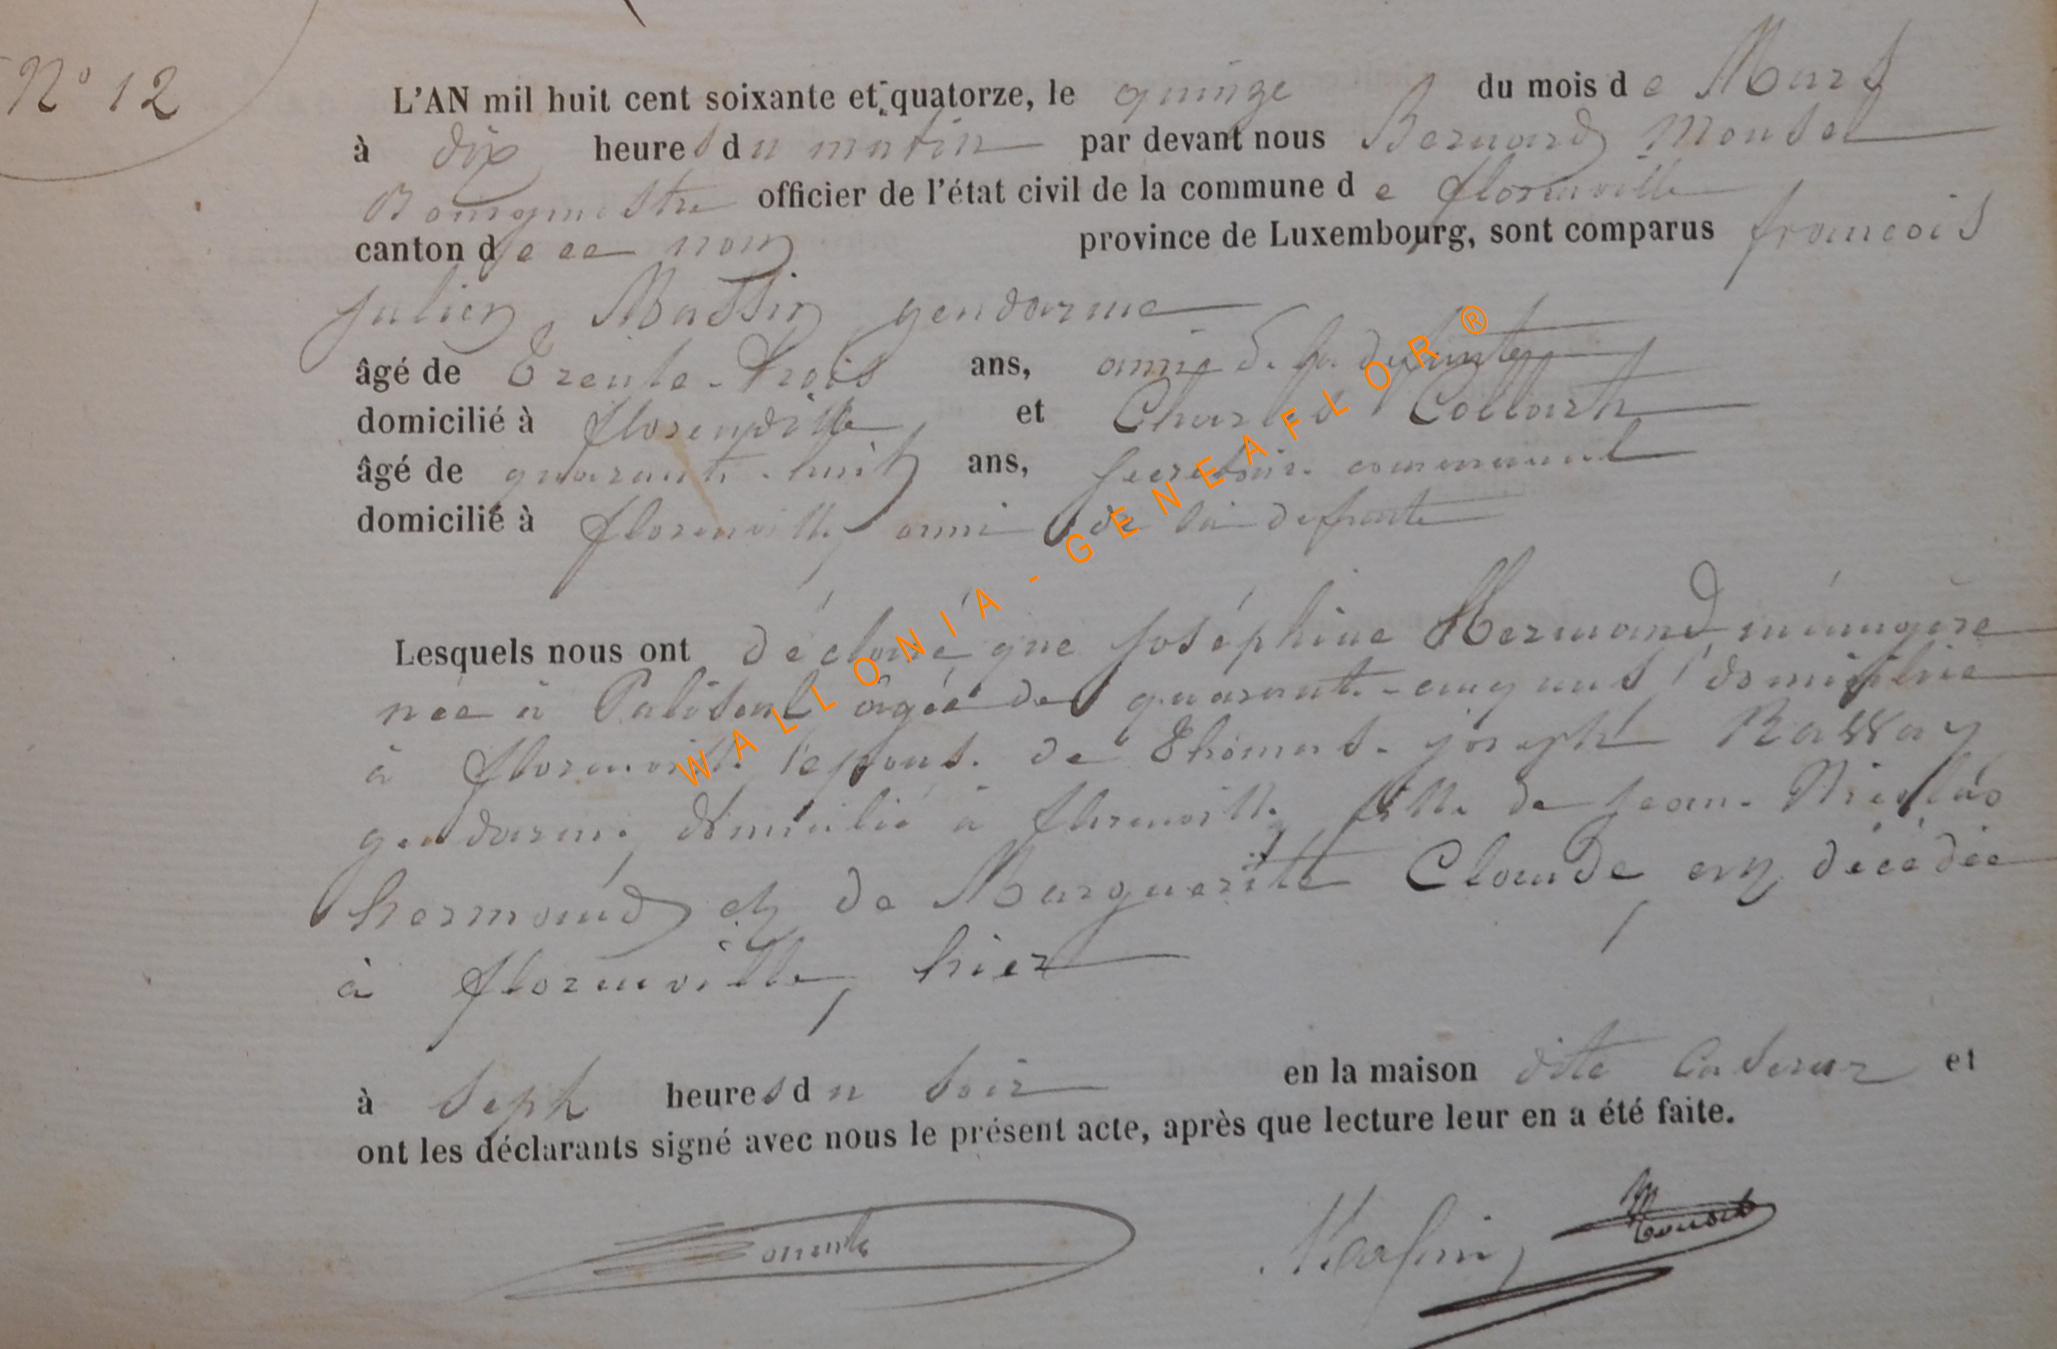 N° 12
L'AN mil huit cent soixante et quatorze, le quinze du mois de Mars
à dix heures du matin par devant nous Bernard Mousel
Bourgmestre officier de l'état civil de la commune de florenville
canton de ce nom province de Luxembourg, sont comparus françois
julien Massin gendarme
âgé de Trente-trois ans, amie de la defunte
domicilié à florenville et Charles Collart
âgé de quarante-huit ans, secretaire communal
domicilié à florenville, ami de la defunte
Lesquels nous ont déclaré que joséphine Hermand ménagère
née à Paliseul agée de quarante-cinq ans domiciliée
à florenville épouse de Thomas-joseph
gendarme domicilié à florenville fille de jean-Nicolas
hermand et de Marguerite Claude, est décédée
à florenville, hier
à sept heures du soir en la maison dite Caserne et
ont les déclarants signé avec nous le présent acte, après que lecture leur en a été faite.
Massin
Mousel
WALLONIA - GENEAFLOR ®